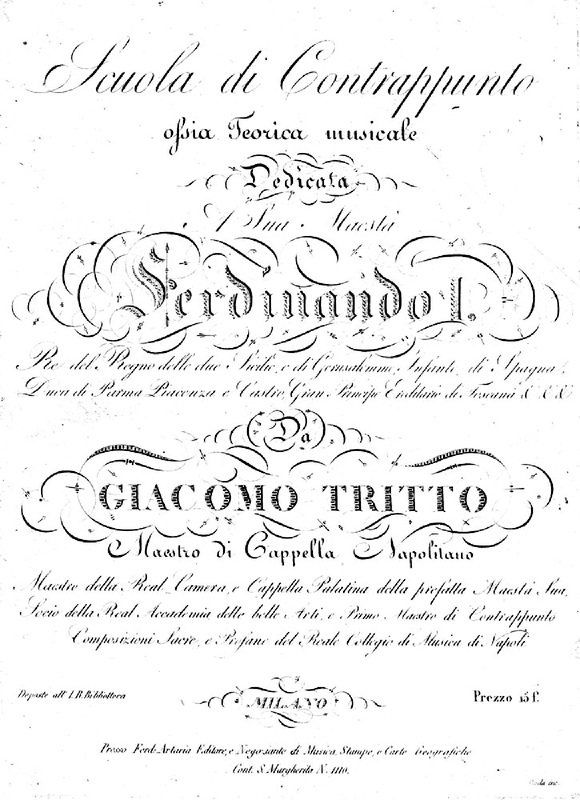 Scuola di Contrappunto
ossia Teorica musicale
Dedicata
A Sua Maestà
Ferdinando I.
Re del Regno delle due Sicilie, e di Gerusalemme, Infante di Spagna,
Duca di Parma Piacenza e Castro, Gran Principe Ereditario di Toscana & & &
Da
GIACOMO TRITTO
Maestro di Cappella Napolitano
Maestro della Real Camera, e Cappella Palatina della prefatta Maestà Sua,
Socio della Real Accademia delle belle Arti, e Primo Maestro di Contrappunto
Composizioni Sacre, e Profane del Reale Collegio di Musica di Napoli
Deposte all' I. R. Bibliotteca
MILANO
Prezzo 15 f.
Presso Ferd. Artaria Editore, e Negoziante di Musica, Stampe, e Carte Geografiche
Cont. S. Margherita N. 1110.
inc.